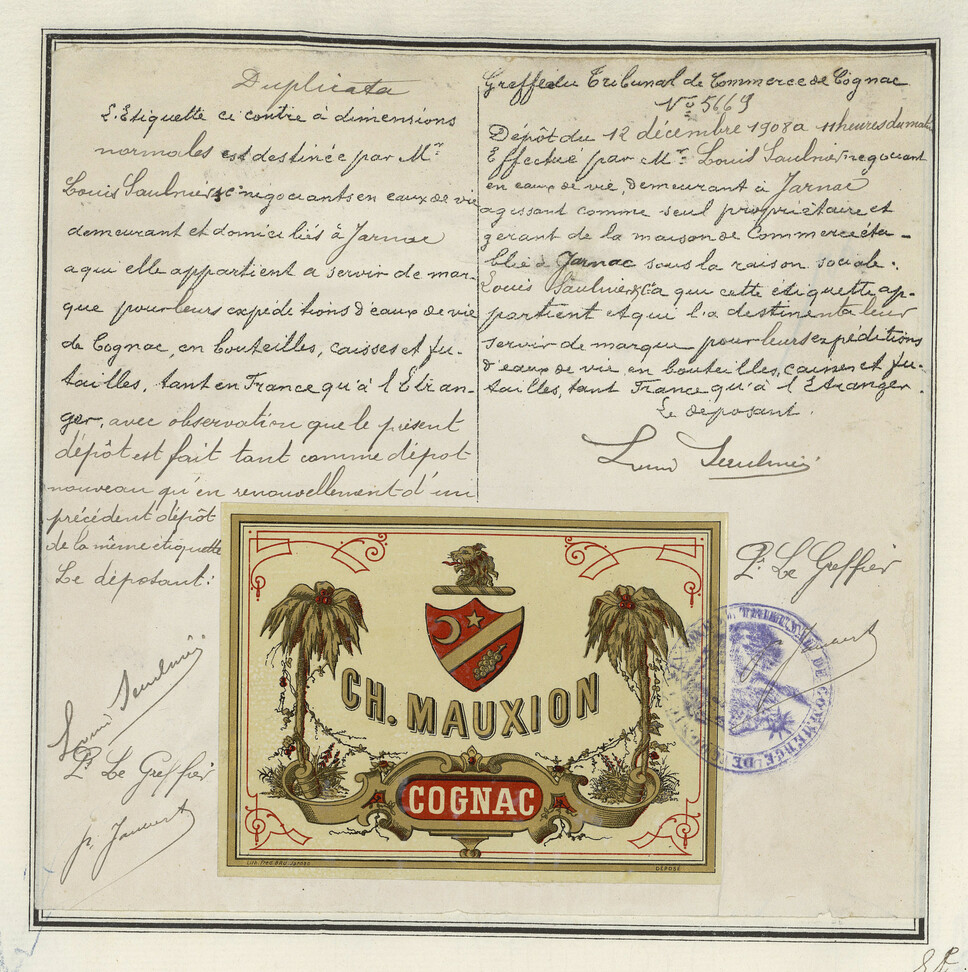 Duplicata
L'Etiquette ci contre à dimensions
normales est destinée par Mr
Louis Saulnier & Cie negociants en eaux de vie
demeurant et domiciliés à Jarnac
a qui elle appartient a servir de mar-
que pour leurs expéditions d'eaux de vie
de Cognac, en bouteilles, caisses et fu-
tailles, tant en France qu'à l'Etran-
ger, avec observation que le présent
dépôt est fait tant comme dépot
nouveau qu'en renouvellement d'un
précédent dépôt
de la même étiquette
Le déposant:
Louis Saulnier
Pr Le Greffier
Greffe du Tribunal de Commerce de Cognac
No 5669
Dépôt du 12 décembre 1908 a 11 heures du matin
Effectué par Mr Louis Saulnier, negociant
en eaux de vie, demeurant à Jarnac
agissant comme seul propriétaire et
gérant de la maison de Commerce éta-
blie à Jarnac sous la raison sociale:
Louis Saulnier & Cie a qui cette etiquette ap-
partient et qui l'a destinent a leur
servir de marque pour leurs expéditions
d'eaux de vie, en bouteilles, caisses et fu-
tailles, tant France qu'à l'Etranger.
Le deposant.
Louis Saulnier
Pr Le Greffier
CH. MAUXION
COGNAC
DÉPOSÉ
TRIBUNAL DE COMMERCE DE